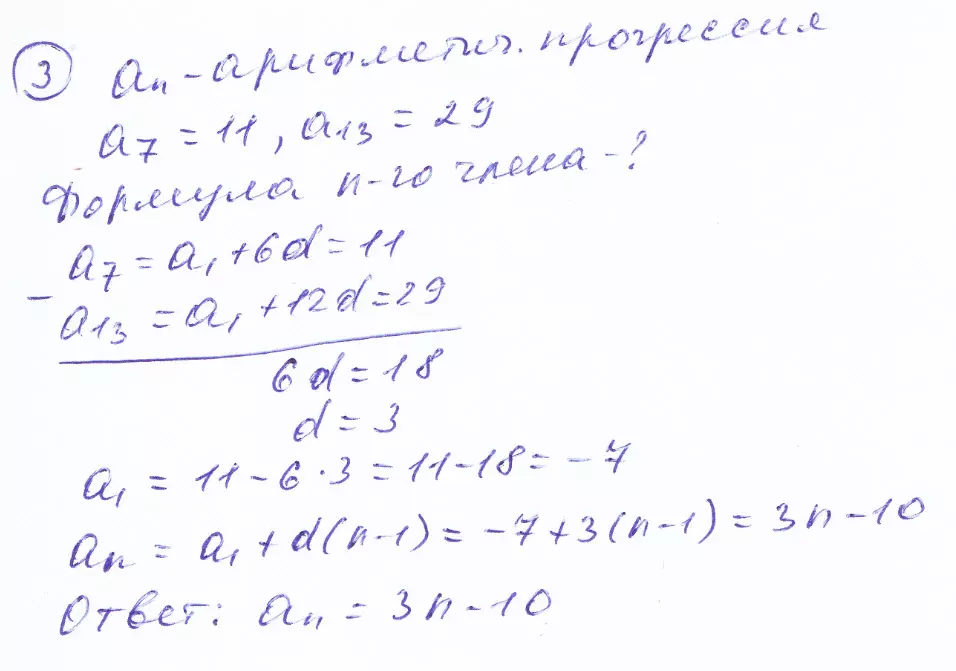 3 aₙ - арифметич. прогрессия
a₇ = 11, a₁₃ = 29
Формула n-го члена - ?
a₇ = a₁ + 6d = 11
- a₁₃ = a₁ + 12d = 29
6d = 18
d = 3
a₁ = 11 - 6 · 3 = 11 - 18 = -7
aₙ = a₁ + d(n-1) = -7 + 3(n-1) = 3n - 10
Ответ: aₙ = 3n - 10